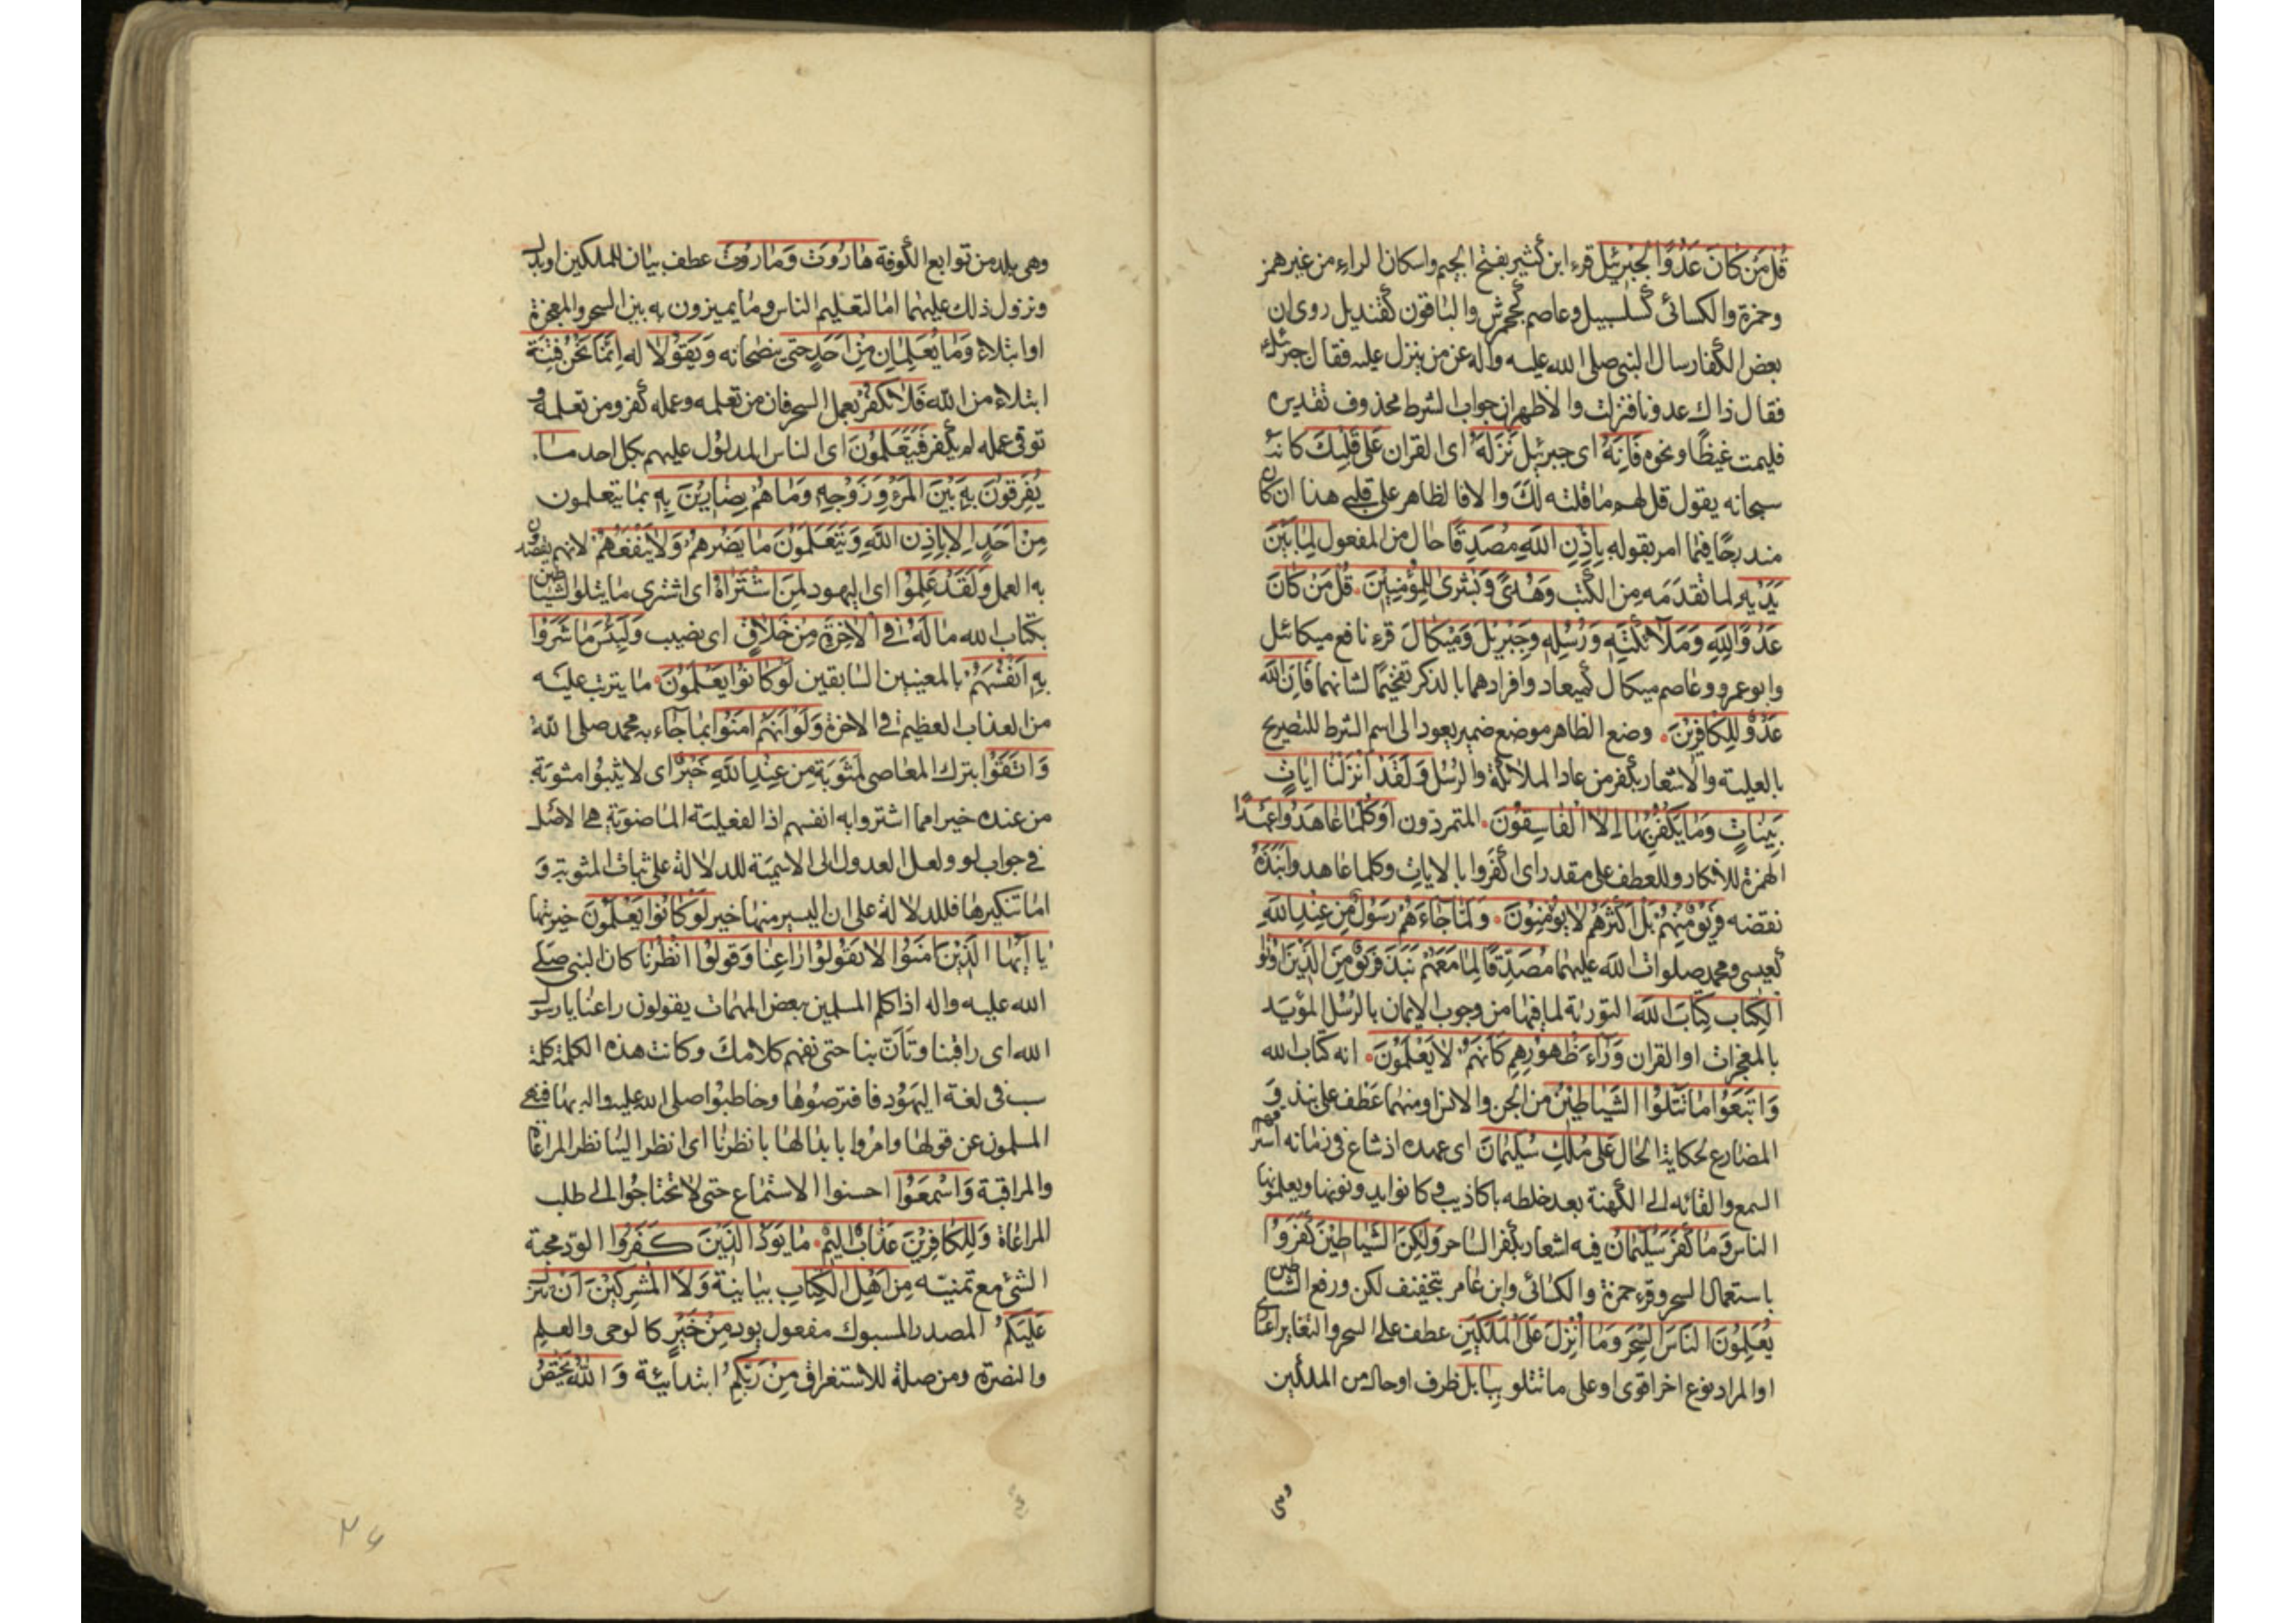 قُلْ مَنْ كَانَ عَدُوًّا لِجِبْرِئِلَ قرء ابن كثير بفتح الجيم واسكان الراء من غير همز
وحمزة والكسائى كسلسبيل وعاصم كجحمرش والباقون كقنديل روى ان
بعض الكفار سال النبى صلى الله عليه واله عن من ينزل عليه فقال جبرئيل
فقال ذاك عدونا فنزلت والاظهر ان جواب الشرط محذوف تقديره
فليمت غيظًا ونحوه فَاِنَّهُ اى جبرئيل نَزَّلَهُ اى القران عَلى قَلْبِكَ كانه
سبحانه يقول قل لهم ما قلته لك والا فالظاهر على قلبى هذا ان كان
مندرجًا فيما امر بقوله بِاِذْنِ اللهِ مُصَدِّقًا حال من المفعول لِمَا بَيْنَ
يَدَيْهِ لما تقدمه من الكتب وَهُدًى وَبُشْرى لِلْمُؤْمِنِيْنَ. قُلْ مَنْ كَانَ
عَدُوًّا لِلّٰهِ وَمَلآئِكَتِهِ وَرُسُلِهِ وَجِبْرِيلَ وَمِيْكَالَ قرء نافع ميكائل
وابو عمرو وعاصم ميكال كميعاد وافرادهما بالذكر تفخيمًا لشانهما فَاِنَّ اللهَ
عَدُوٌّ لِلْكَافِرِيْنَ. وضع الظاهر موضع ضمير يعود الى اسم الشرط للتصريح
بالعلية والاشعار بكفر من عادا الملائكة والرسل وَلَقَدْ اَنْزَلْنَا اياتٍ
بَيِّنَاتٍ وَمَا يَكْفُرُ بِهَا اِلَّا الْفَاسِقُوْنَ. المتمردون اَوَكُلَّمَا عَاهَدُوا عَهْدًا
الهمزة للانكار وللعطف على مقدر اى اكفروا بالايات وكلما عاهدوا نَبَذَهُ
نقضه فَرِيْقٌ مِنْهُمْ بَلْ اَكْثَرُهُمْ لا يُؤْمِنُوْنَ. وَلَمَّا جَاءَهُمْ رَسُوْلٌ مِنْ عِنْدِ اللهِ
كعيسى ومحمد صلوات الله عليهما مُصَدِّقًا لِمَا مَعَهُمْ نَبَذَ فَرِيْقٌ مِنَ الَّذِيْنَ اُوتُوا
الْكِتَابَ كِتَابَ اللهِ التورية لما فيها من وجوب الايمان بالرسل المؤيد
بالمعجزات او القران وَرَاءَ ظُهُوْرِهِمْ كَاَنَّهُمْ لا يَعْلَمُوْنَ. انه كتاب الله
وَاتَّبَعُوا مَا تَتْلُوا الشَّيَاطِيْنُ من الجن والانس او منهما عطف على نبذ و
المضارع لحكاية الحال عَلى مُلْكِ سُلَيْمَانَ اى عهده اذ شاع فى زمانه
السمع والقائه الى الكهنة بعد خلطه باكاذيب وكانوا يدونونها ويعلمونها
الناس وَمَا كَفَرَ سُلَيْمَانُ فيه اشعار بكفر الساحر وَلكِنَّ الشَّيَاطِيْنَ كَفَرُوْا
باستعمال السحر وقرء حمزة والكسائى وابن عامر بتخفيف لكن ورفع الشياطين
يُعَلِّمُوْنَ النَّاسَ السِّحْرَ وَمَا اُنْزِلَ عَلَى الْمَلَكَيْنِ عطف على السحر والتغاير
او المراد نوع اخر اقوى او على ما تتلو بِبَابِلَ ظرف او حال من الملكين
وهى
وهى بلد من توابع الكوفة هَارُوتَ وَمَارُوتَ عطف بيان للملكين او بدل
ونزول ذلك عليهما اما لتعليم الناس وما يميزون به بين السحر والمعجزة
او ابتلاء وَمَا يُعَلِّمَانِ مِنْ اَحَدٍ حتى ينصحانه وَيَقُوْلا له اِنَّمَا نَحْنُ فِتْنَةٌ
ابتلاء من الله فَلا تَكْفُرْ بعمل السحر فان من تعلمه وعمله كفر ومن تعلمه و
توقى عمله لم يكفر فَيَتَعَلَّمُوْنَ اى الناس المدلول عليهم بكل احد مَا.
يُفَرِّقُوْنَ بِهِ بَيْنَ الْمَرْءِ وَزَوْجِهِ وَمَا هُمْ بِضَارِّيْنَ بِهِ بما يتعلمون
مِنْ اَحَدٍ اِلا بِاِذْنِ اللهِ وَيَتَعَلَّمُوْنَ مَا يَضُرُّهُمْ وَلا يَنْفَعُهُمْ لانهم يقصدون
به العمل وَلَقَدْ عَلِمُوْا اى اليهود لَمَنِ اشْتَرَاهُ اى اشترى ما يتلوا الشياطين
بكتاب الله مَا لَهُ فِى الْاخِرَةِ مِنْ خَلاقٍ اى نصيب وَلَبِئْسَ مَا شَرَوْا
بِهِ اَنْفُسَهُمْ بالمعنيين السابقين لَوْ كَانُوْا يَعْلَمُوْنَ. ما يترتب عليه
من العذاب العظيم فى الاخرة وَلَوْ اَنَّهُمْ امَنُوْا بما جاء به محمد صلى الله
وَاتَّقَوْا بترك المعاصى لَمَثُوْبَةٌ مِنْ عِنْدِ اللهِ خَيْرٌ اى لاثيبوا مثوبة
من عنده خيرا مما اشتروا به انفسهم اذ الفعلية الماضوية هى الاصل
فى جواب لو ولعل العدول الى الاسمية للدلالة على ثبات المثوبة و
اما تنكيرها فللدلالة على ان اليسير منها خير لَوْ كَانُوْا يَعْلَمُوْنَ خيريتها
يَا اَيُّهَا الَّذِيْنَ امَنُوْا لا تَقُوْلُوْا رَاعِنَا وَقُولُوْا انْظُرْنَا كان النبى صلى
الله عليه واله اذا كلم المسلمين بعض المهمات يقولون راعنا يا رسول
الله اى راقبنا وتأن بنا حتى نفهم كلامك وكانت هذه الكلمة كلمة
سب فى لغة اليهود فافترصوها وخاطبوا صلى الله عليه واله بها فنهى
المسلمون عن قولها وامروا بابدالها بانظرنا اى انظر الينا نظر المراعاة
والمراقبة وَاسْمَعُوْا احسنوا الاستماع حتى لا تحتاجوا الى طلب
المراعاة وَلِلْكَافِرِيْنَ عَذَابٌ اَلِيْمٌ. مَا يَوَدُّ الَّذِيْنَ كَفَرُوْا الود محبة
الشئ مع تمنيه مِنْ اَهْلِ الْكِتَابِ بيانية وَلا الْمُشْرِكِيْنَ اَنْ يُنَزَّلَ
عَلَيْكُمْ المصدر المسبوك مفعول يود مِنْ خَيْرٍ كالوحى والعلم
والنصرة ومن صلة للاستغراق مِنْ رَبِّكُمْ ابتدائية وَاللهُ يَخْتَصُّ